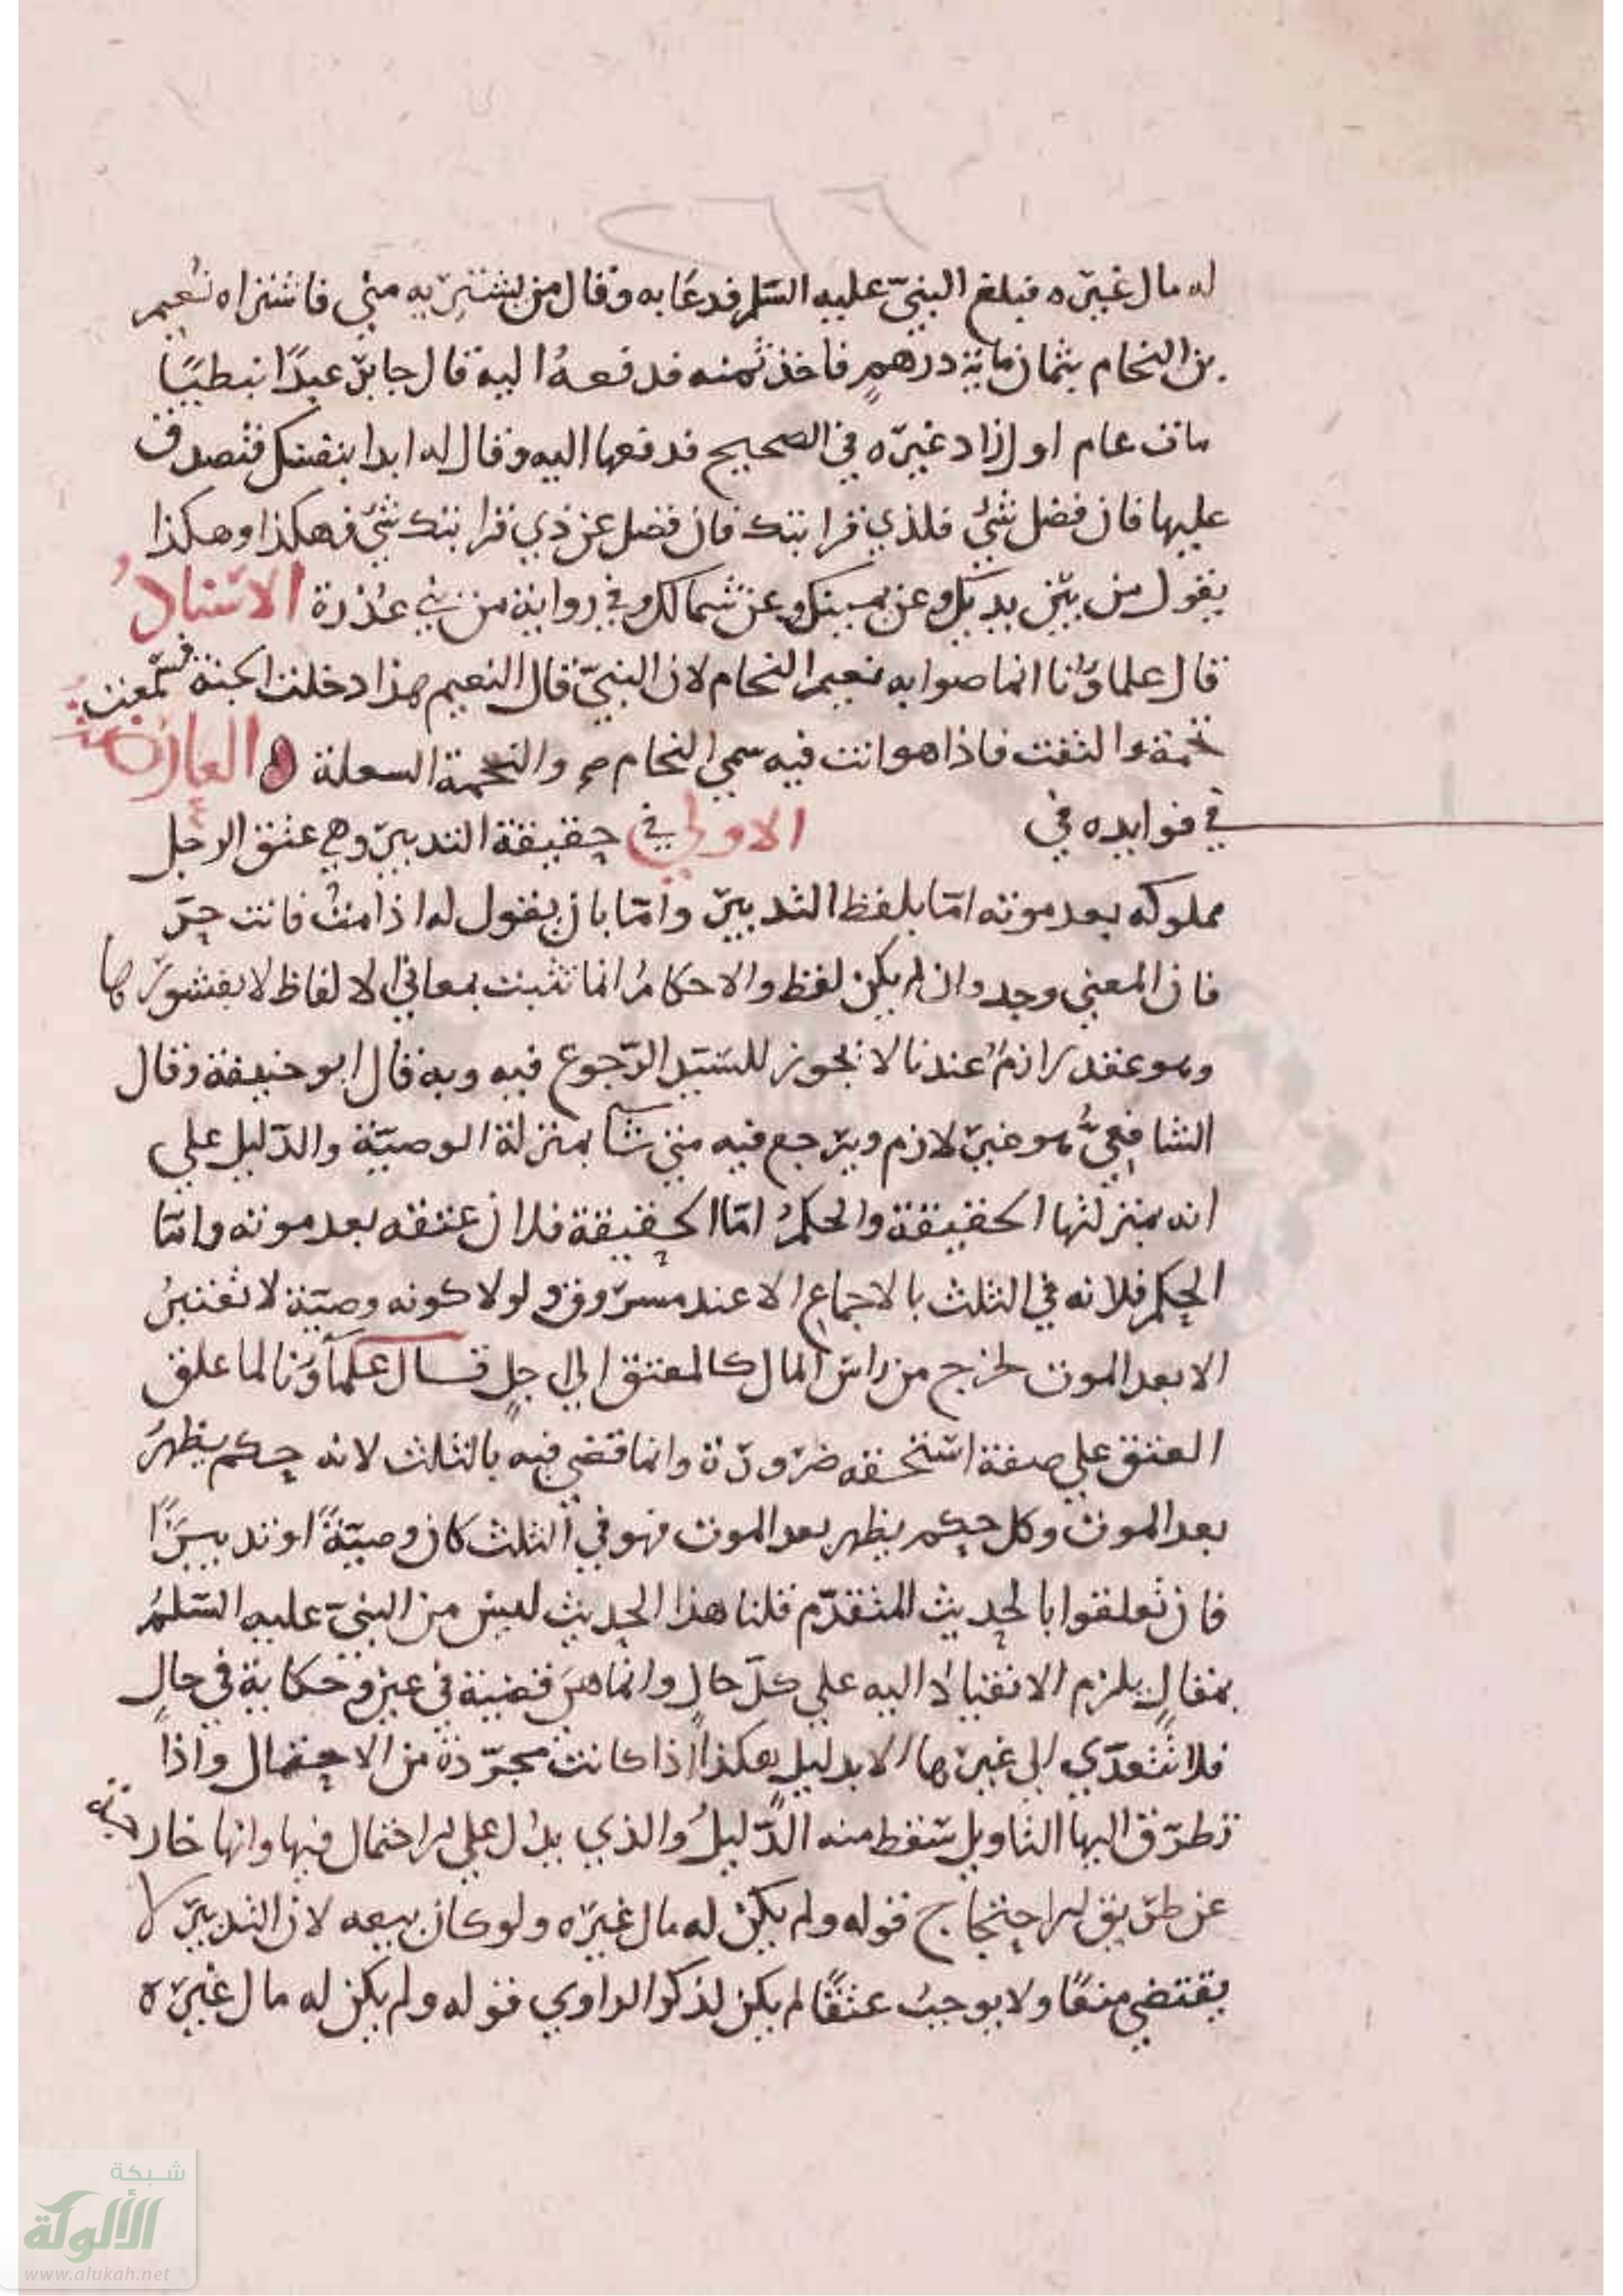 ٢٦٦
له مال غيره فبلغ النبيّ عليه السّلم فدعا به وقال من يشتريه مني فاشتراه نُعيم
بن النحام بثمان ماية درهمٍ فاخذ ثمنه فدفعهُ اليه قال جابرٌ عبدًا نبطيًا
مات عام اول زاد غيره في الصحيح فدفعها اليه وقال له ابدا بنفسك فتصدق
عليها فان فضل شيٌ فلذي قرابتك فان فضل عن ذي قرابتك شيٌ فهكذا وهكذا
يقول من بين يديك وعن يمينك وعن شمالك وفي رواية من بني عذرة الاسناد
قال علماؤنا انما صوابه نعيم النحام لان النبيّ قال لنعيم هذا دخلت الجنة فسمعت
نحمة والتفت فاذا هو انت فيه سمي النحام والنحمة السعلة العارضة
في فوايده في الاولي في حقيقة التدبير وهي عتق الرجل
مملوكه بعد موته امّا بلفظ التدبير وامّا بان يقول له اذا متُ فانت حرّ
فان المعني وجد وان لم يكن لفظ والاحكامُ انما تثبت بمعاني الالفاظ لا
وهو عقد لازمٌ عندنا لا يجوز للسّيّد الرّجوع فيه وبه قال ابو حنيفة وقال
الشافعيُّ هو غير لازم ويرجع فيه متي شآ بمنزلة الوصيّة والدّليل علي
انه بمنزلتها الحقيقة والحكمُ امّا الحقيقة فلان عتقه بعد موته وامّا
الحكم فلانه في الثلث بالاجماع الا عند مسروق ولولا كونه وصيّة لا تعتبرُ
الا بعد الموت لخرج من راس المال كالمعتق الي اجلٍ قال علمآؤنا لما علق
العتق علي صفة استحقه ضرورة وانما قضي فيه بالثلث لانه حكم يظهرُ
بعد الموت وكل حكم يظهر بعد الموت فهو في الثلث كان وصيّةً او تدبيرًا
فان تعلقوا بالحديث المتقدّم قلنا هذا الحديث ليس من النبيّ عليه السّلمُ
بمقالٍ يلزم الانقياد اليه علي كلّ حالٍ وانما هي قضية في عين وحكاية في حالٍ
فلا تتعدّي الي غيرها الا بدليل هكذا اذا كانت مجرّدة من الاحتمال واذا
تطرّق اليها التاويل سقط منه الدّليلُ والذي يدل علي الاحتمال فيها وانها خارجة
عن طريق الاحتجاج قوله ولم يكن له مال غيره ولو كان بيعه لان التدبير لا
يقتضي منعًا ولا يوجبُ عتقًا لم يكن لذكر الراوي قوله ولم يكن له مال غيره
شبكة
الألوكة
www.alukah.net